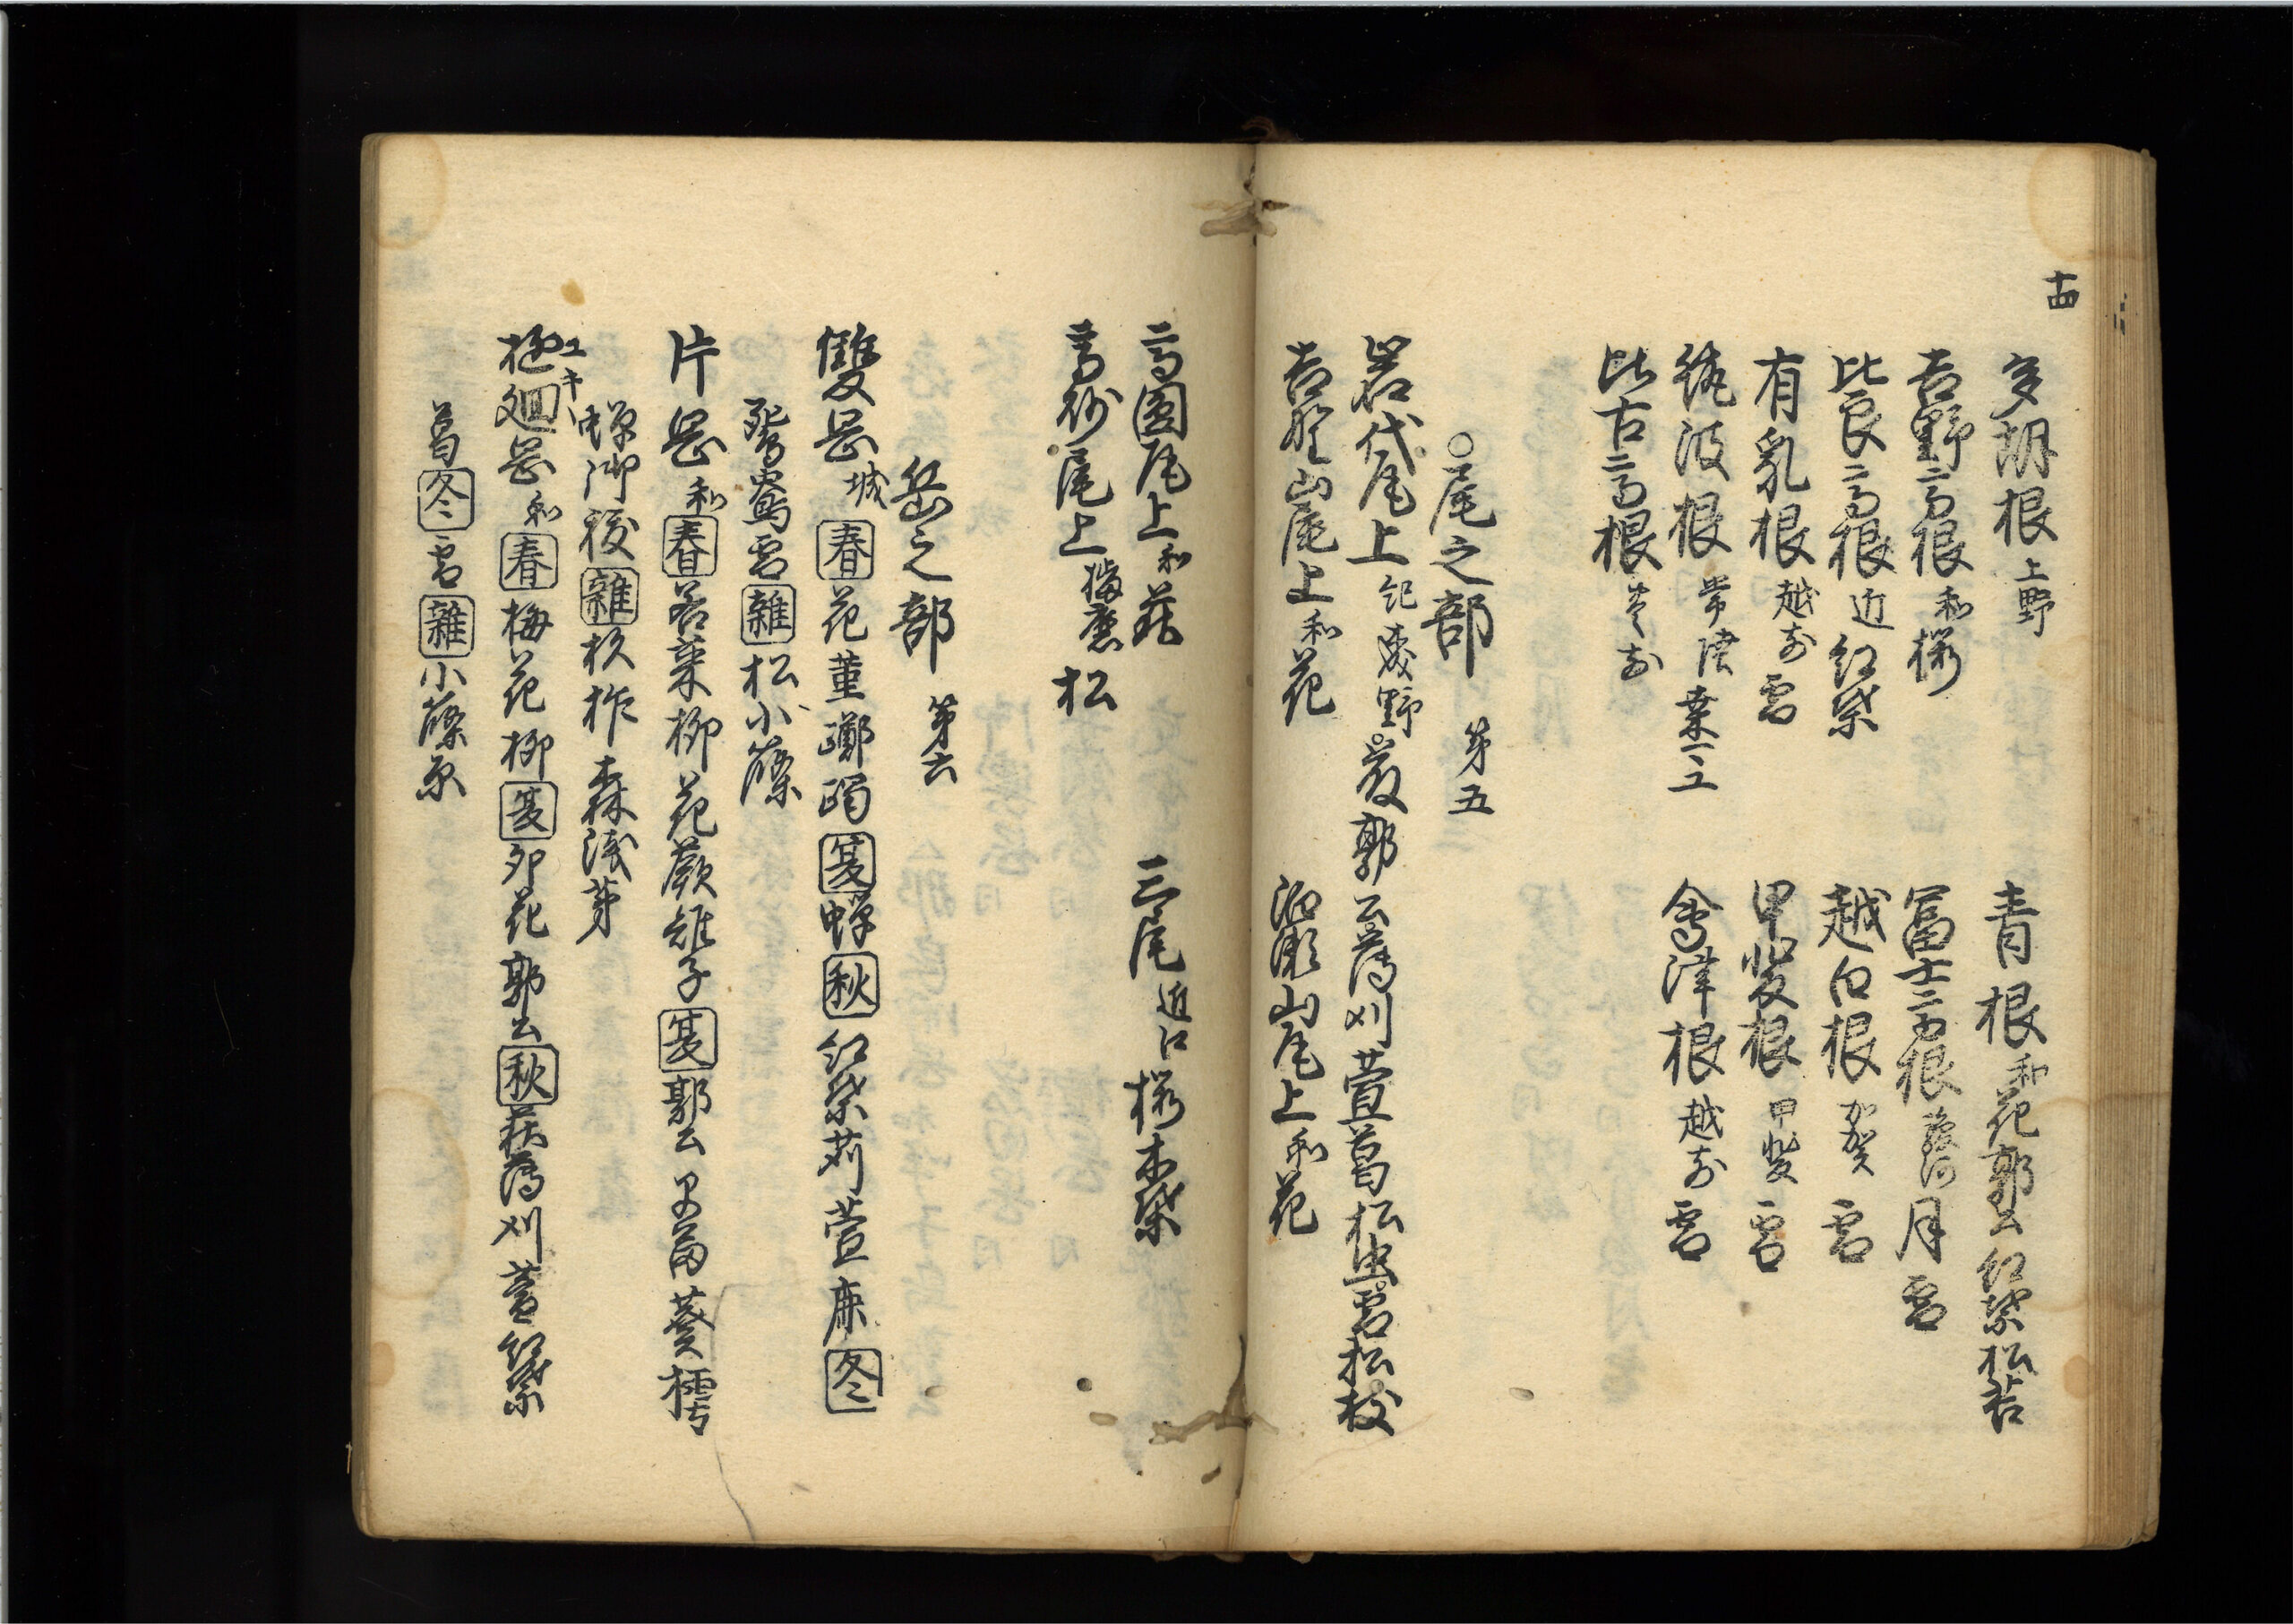 十四
多胡根 上野
青根 和 花郭公紅葉松苔
吉野高根 和 桜
冨士高根 駿河 月雪
比良高根 近 紅葉
越白根 加賀 雪
有乳根 越前 雪
甲斐根 甲斐 雪
筑波根 常陸
會津根 越前 雪
比古高根
○尾之部 第五
岩代尾上 紀 郭公薄刈萱葛松虫雪松
吉野山尾上 和 花
泊瀬山尾上 和 花
高圓尾上 和 萩
三尾 近江 桜木葉
高砂尾上 播磨 松
岳之部 第六
雙岡 城 春 花菫躑躅 夏 蝉 秋 紅葉苅萱鹿 冬
鴛鴦雪 雜 松小篠
片岡 和 春 若菜柳花蕨雉子 夏 郭公 葵樗
蝉御祓 雜 杦柞森浅芽
ユキヽ
極廻岡 和 春 梅花柳 夏 卯花郭公 秋 萩薄刈萱紅葉
葛 冬 雪 雜 小篠原